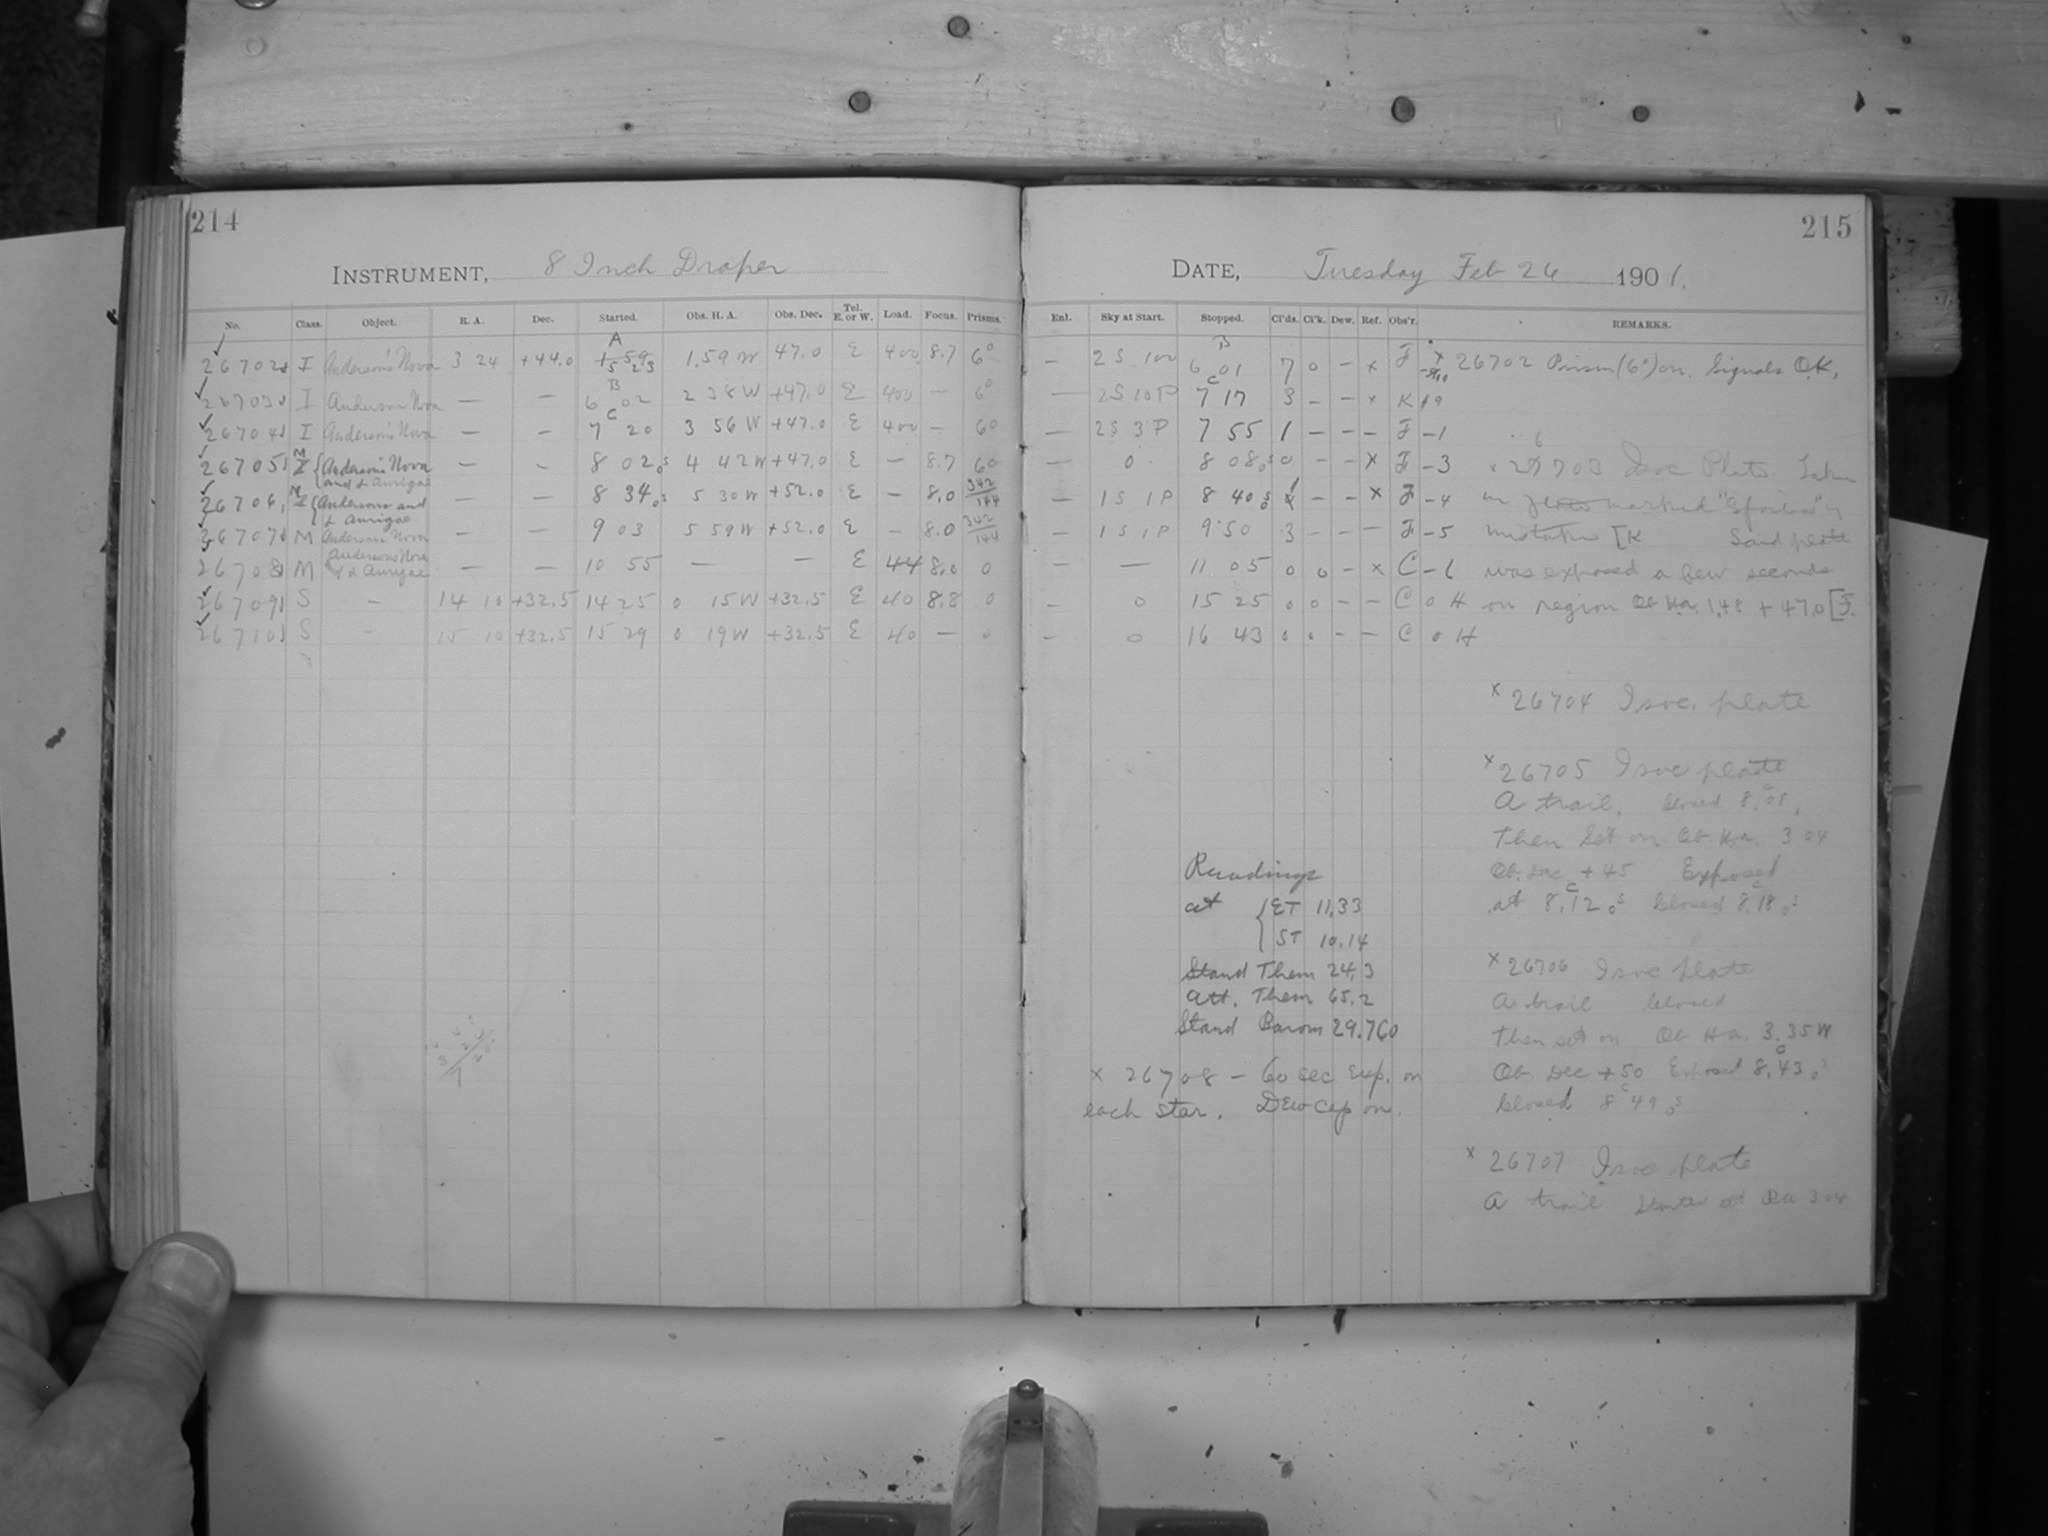 214
215
INSTRUMENT, 8 Inch Draper
DATE, Tuesday Feb 26 1901.
No. Class. Object. R. A. Dec. Started. Obs. H. A. Obs. Dec. Tel. E. or W. Load. Focus. Prisms. Enl. Sky at Start. Stopped. Cl'ds. Cl'k. Dew. Ref. Obs'r. REMARKS.
A B
26702 I Anderson's Nova 3 24 +44.0 5 23 1,59 W 47.0 E 400 8.7 6° — 2S 100 6 01 7 0 — x F x 26702 Prism (6°) on. Signals O.K,
B C
26703 I Anderson Nova — — 6 02 2 38 W +47.0 E 400 — 6° — 2S 10P 7 17 3 — — x K 19
C
26704 I Anderson's Nova — — 7 20 3 56 W +47.0 E 400 — 60 — 2S 3P 7 55 1 — — — F -1
26705 M { Anderson's Nova and α Aurigae — — 8 02 0s 4 42 W +47.0 E — 8.7 60 — 0 8 08 0s 0 — — x F -3 x 26703 Isoc Plate. Taken
26706 M { Andersons and α Aurigae — — 8 34 0s 5 30 W +52.0 E — 8.0 342/144 — 1S 1P 8 40 0s — — x F -4 marked
26707 M Andersons Nova — — 9 03 5 59 W +52.0 E — 8.0 342/144 — 1S 1P 9 50 3 — — — F -5 mistake [K Said plate
26708 M Andersons Nova & α Aurigae — — 10 55 — — E 44 8.0 0 — — 11 05 0 0 — x C -6 was exposed a few seconds
26709 S — 14 10 +32.5 14 25 0 15 W +32.5 E 40 8.8 0 — 0 15 25 0 0 — — C 0 H on region Ob Ha. 1,48 + 47.0 [F.
26710 S — 15 10 +32.5 15 29 0 19 W +32.5 E 40 — 0 — 0 16 43 0 0 — — C 0 H
x 26704 Isoc. plate
x 26705 Isoc plate
A trail, closed 8.08,
Then Set on Ob. Ha. 3 04
Ob. Dec + 45 Exposed
at 8,12 0s closed 8,18 0s
Readings
at { ET 11,33
ST 10.14
Stand Them 24,3
Att. Them 65.2
Stand Barom 29.760
x 26706 Isoc plate
A trail closed
Then set on Ob Ha. 3.35 W
Ob. Dec +50 Exposed 8,43 0s
closed 8 49 0s
x 26708 — 60 sec exp. on
each star. Dewcap on.
x 26707 Isoc plate
A trail Started at Ra 3 04